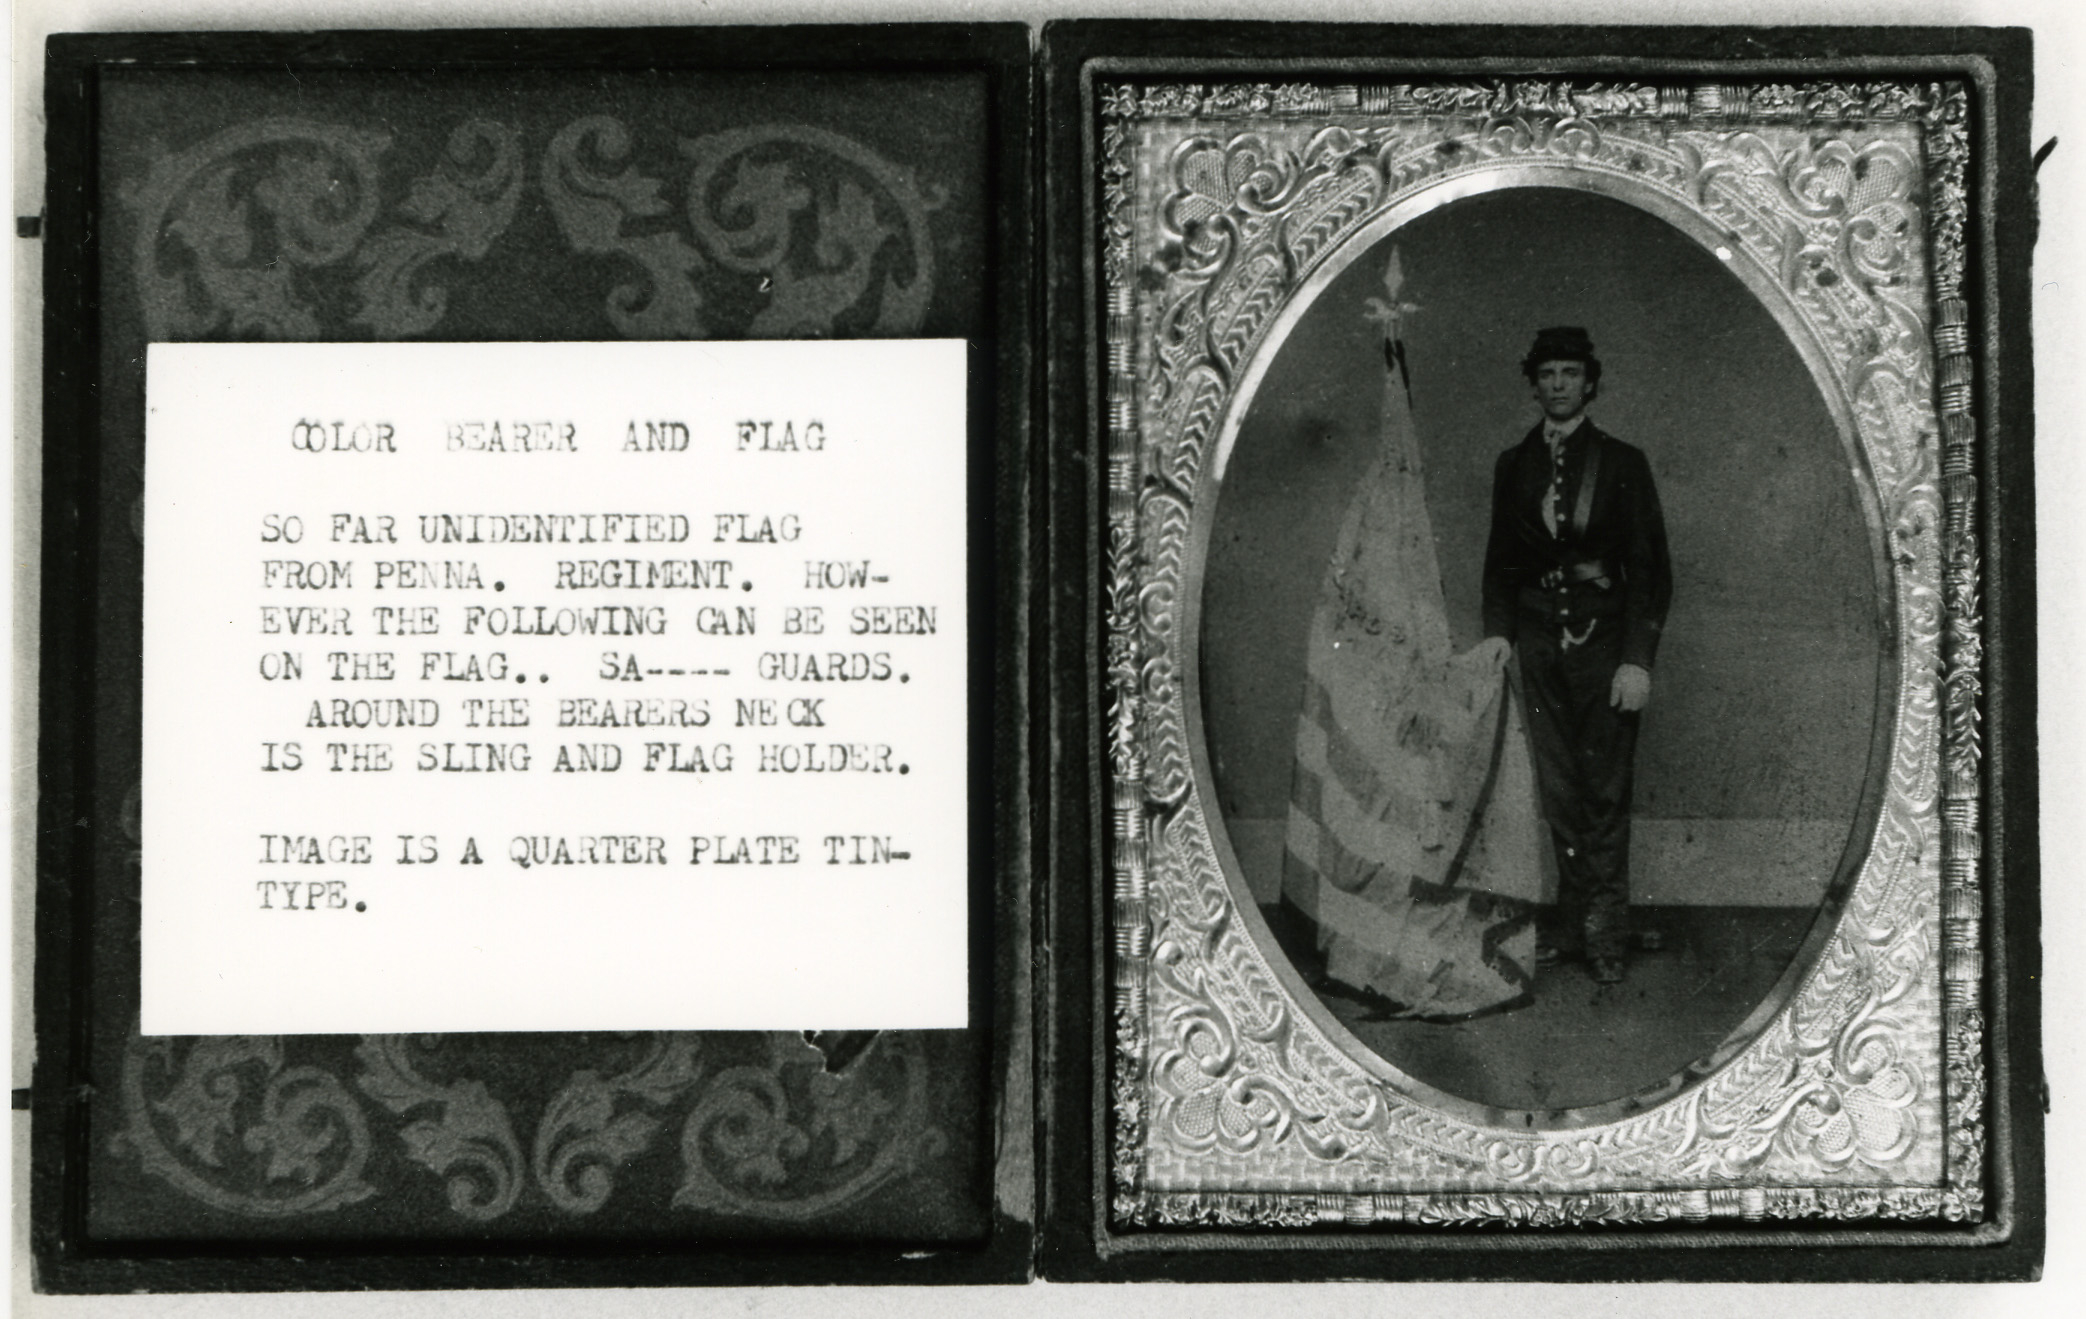 COLOR BEARER AND FLAG
SO FAR UNIDENTIFIED FLAG
FROM PENNA. REGIMENT. HOW-
EVER THE FOLLOWING CAN BE SEEN
ON THE FLAG.. SA---- GUARDS.
AROUND THE BEARERS NECK
IS THE SLING AND FLAG HOLDER.
IMAGE IS A QUARTER PLATE TIN-
TYPE.